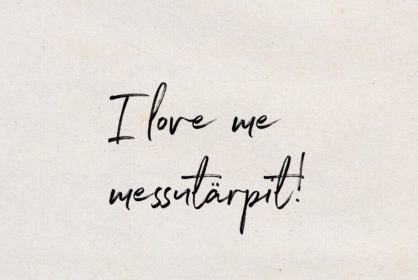 I love me
messutärpit!